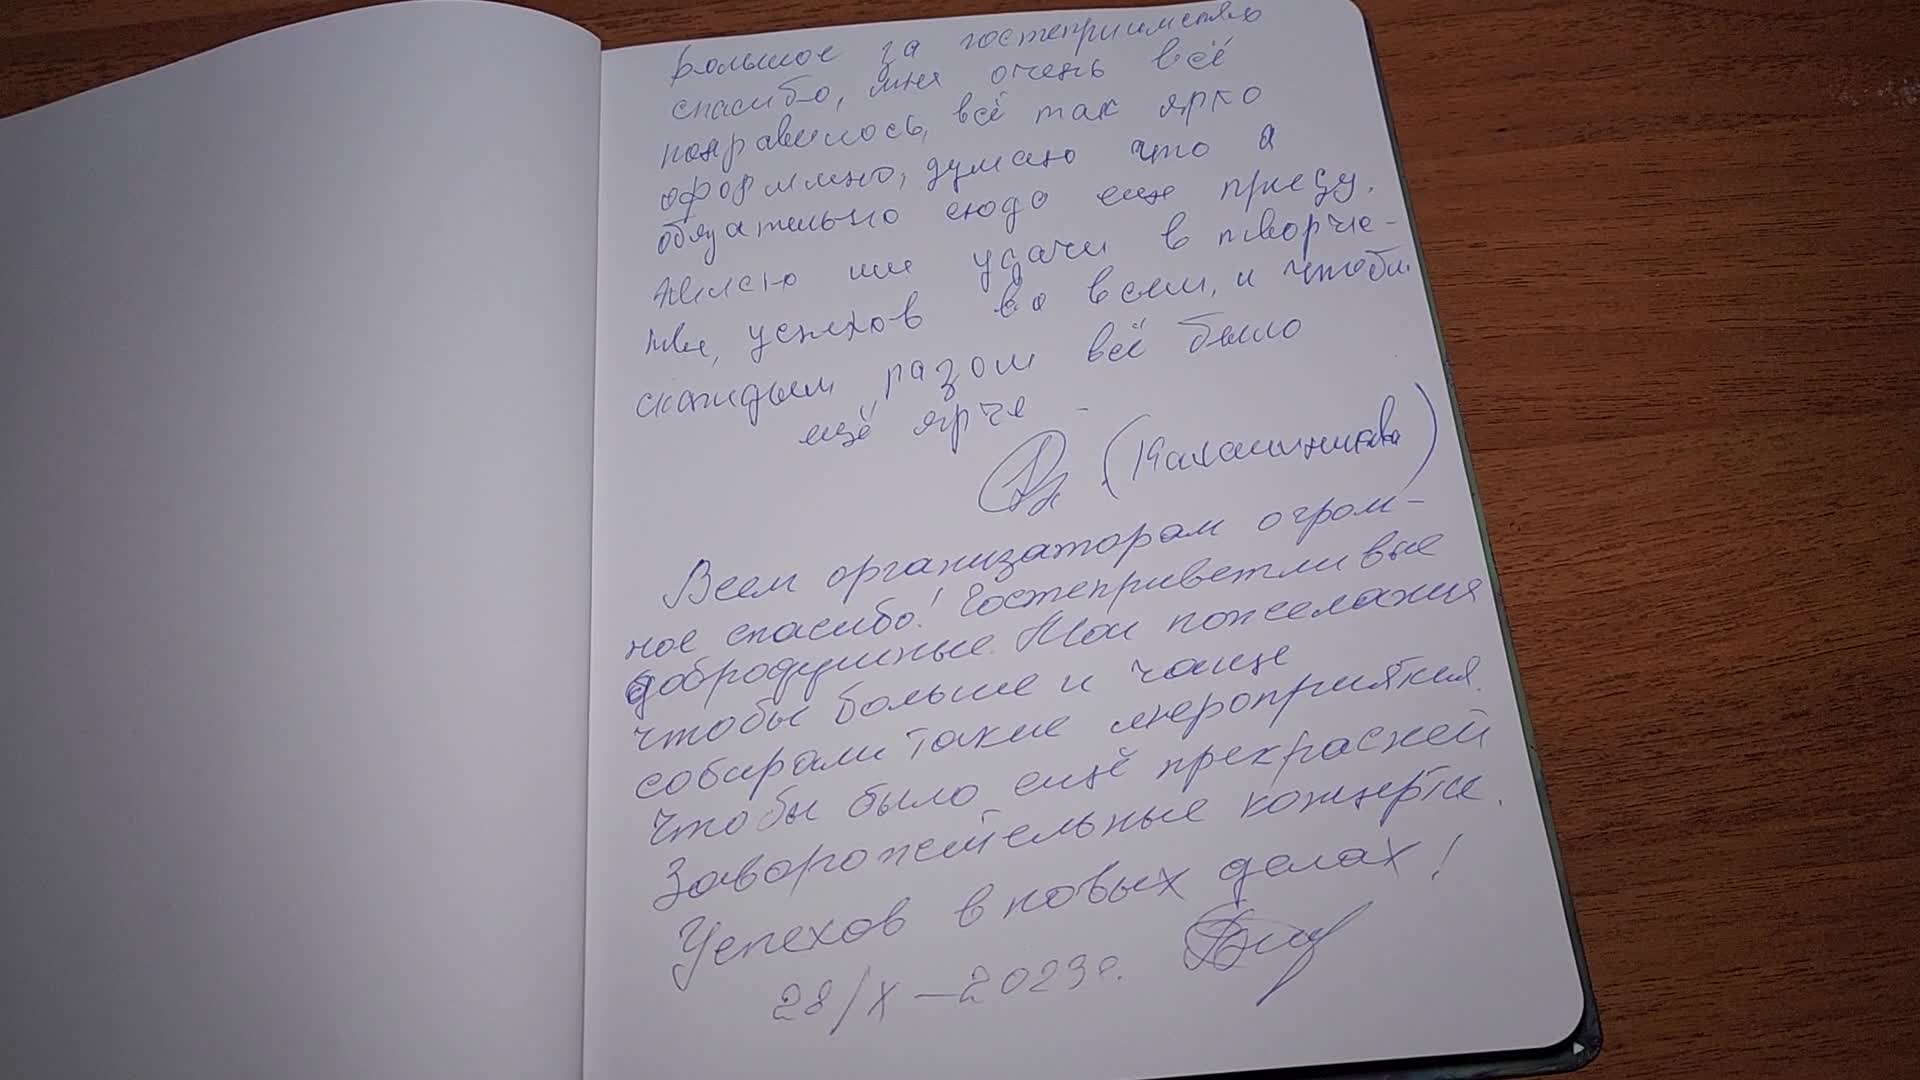 Большое за гостеприимство
спасибо, мне очень всё
понравилось, всё так ярко
оформлено, думаю что я
обязательно сюда еще приеду.
Желаю им удачи в творче-
тве, успехов во всем, и чтобы
скаждым разом всё было
ещё ярче -
(Калашникова)
Всем организаторам огром-
ное спасибо! Гостеприветливые
добродушные. Мои пожелания
чтобы больше и чаще
собирали такие мероприятия.
Чтобы было ещё прекрасней
Заворожительные концерты.
Успехов в новых делах!
28/X-2023г.